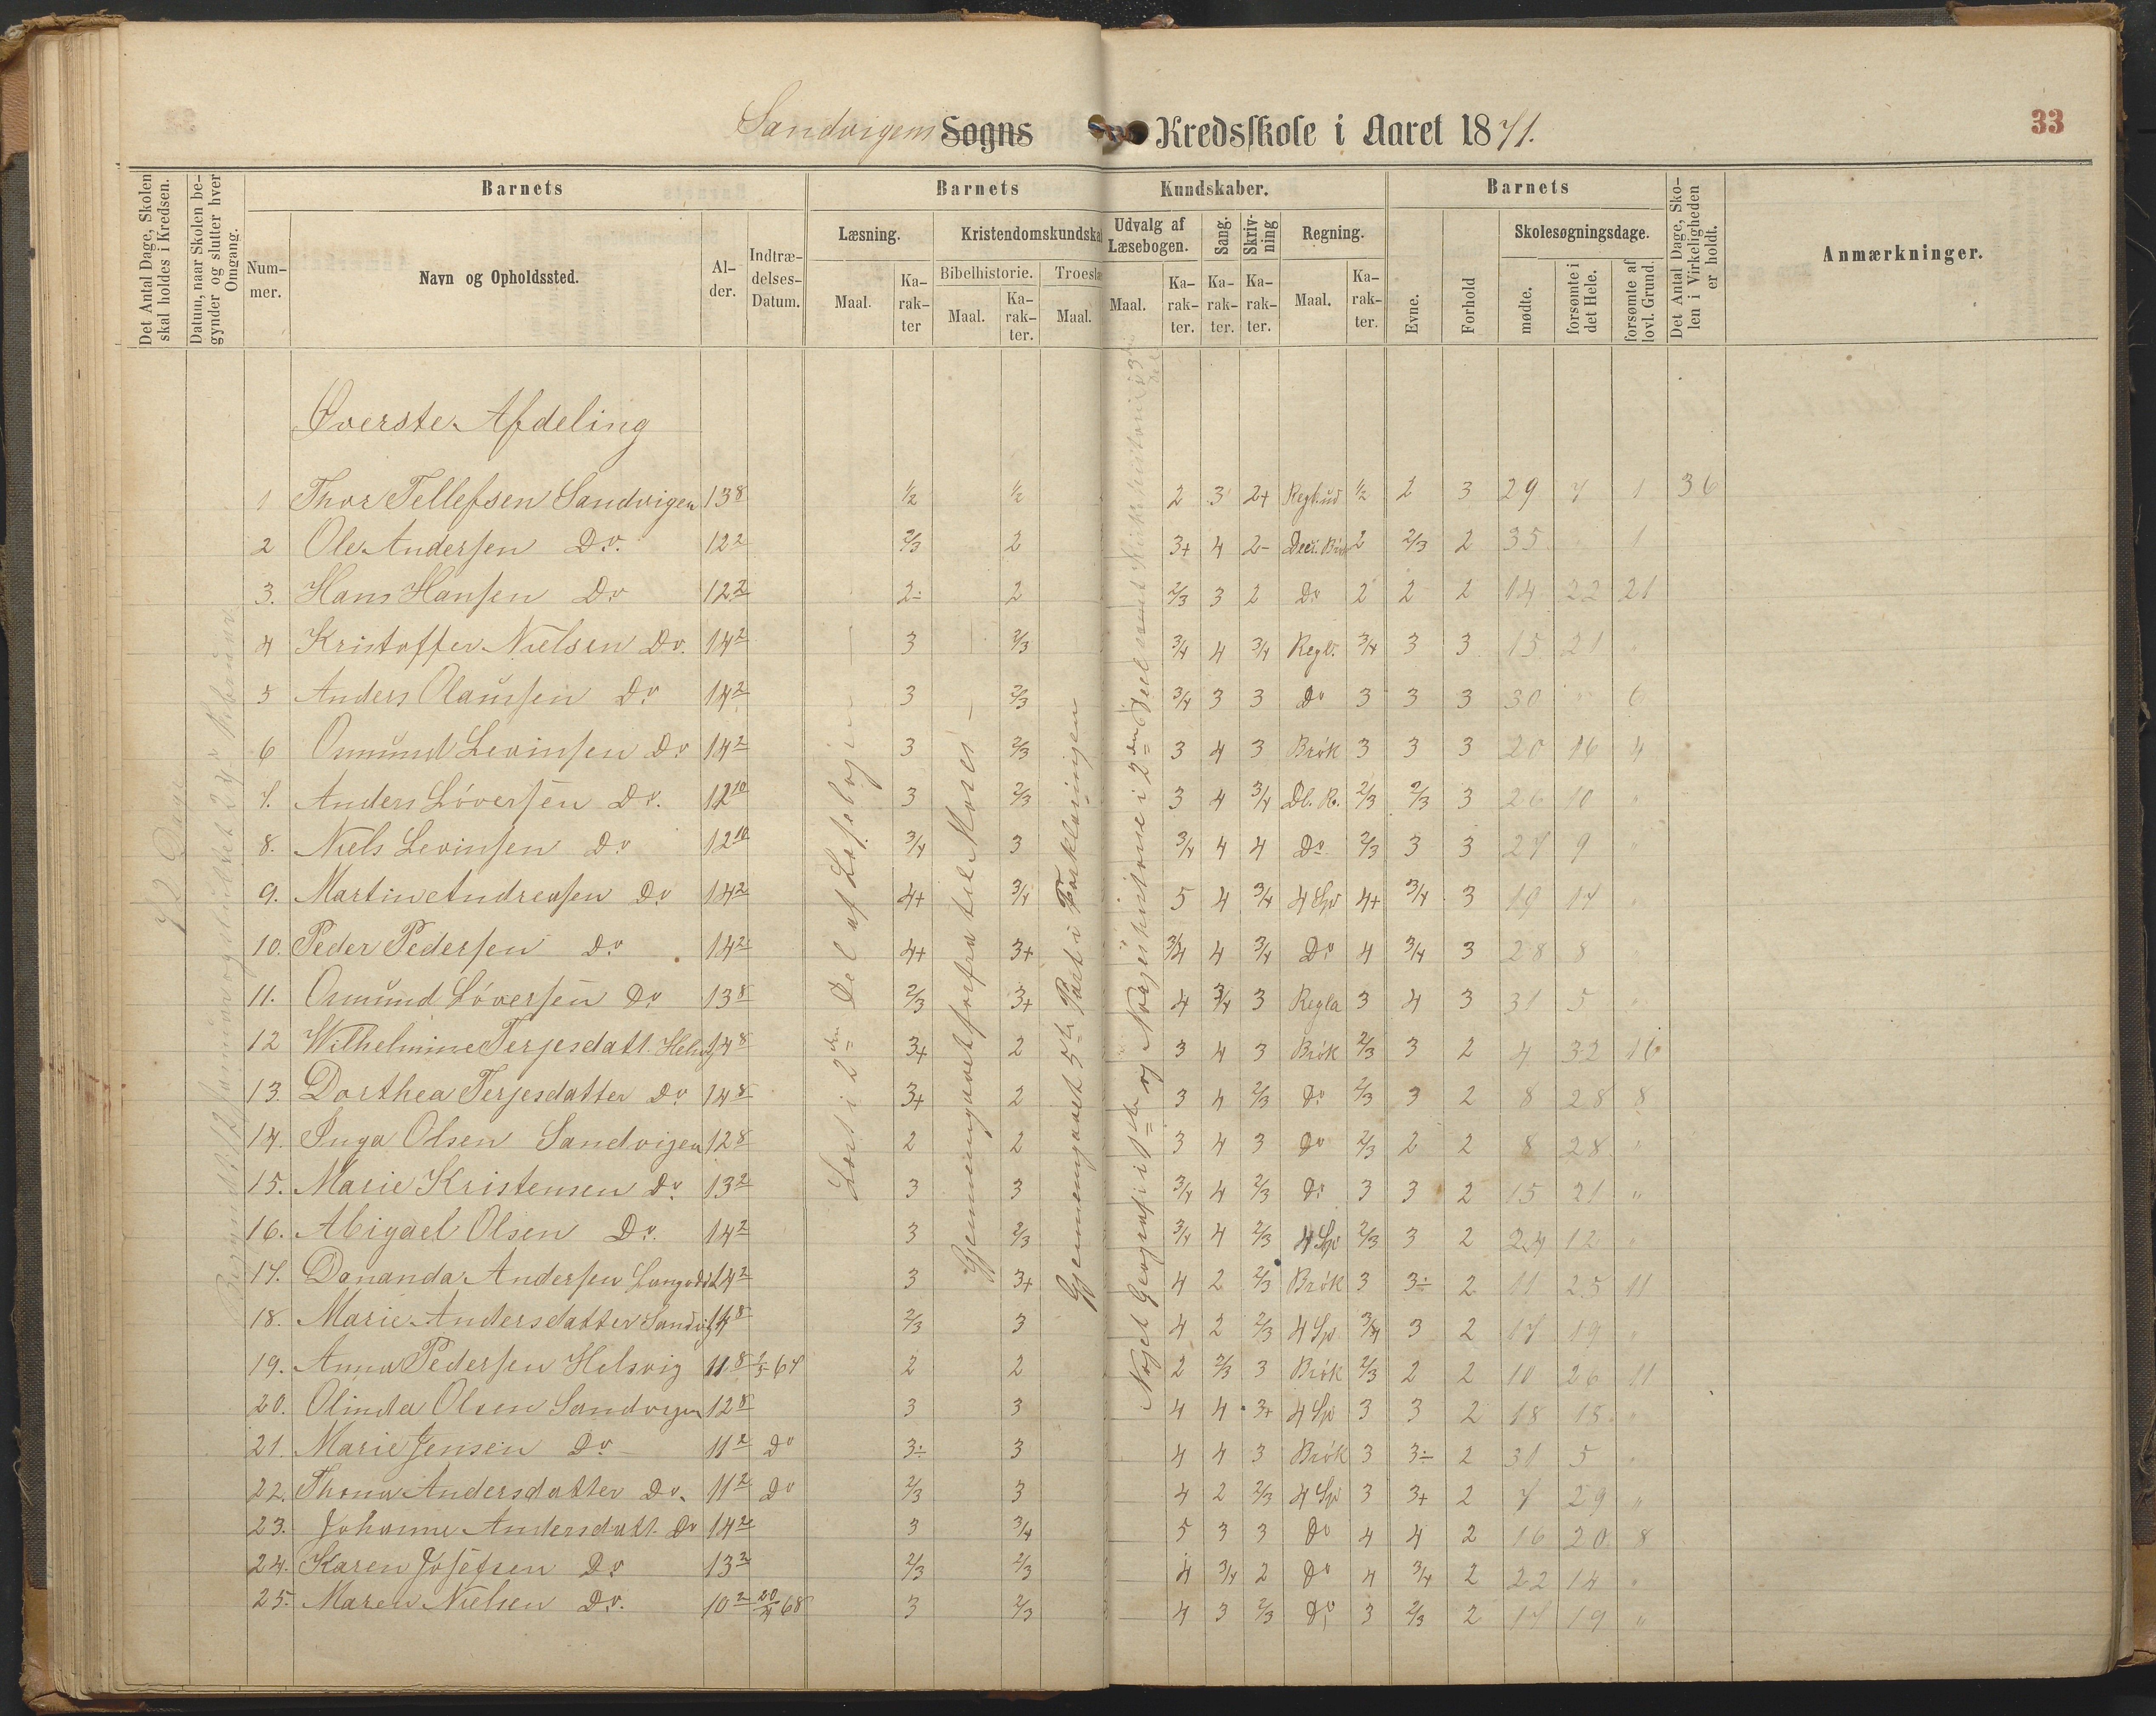 33
Sandvigens Sogns Kredsskole i Aaret 1871.
Det Antal Dage, Skolen skal holdes i Kredsen.
Datum, naar Skolen begynder og slutter hver Omgang.
Barnets
Num-mer.
Navn og Opholdssted.
Al-der.
Indtræ-delses-Datum.
Barnets Kundskaber.
Læsning.
Maal.
Ka-rak-ter
Kristendomskundska
Bibelhistorie.
Maal.
Ka-rak-ter.
Troeslæ
Maal.
Udvalg af Læsebogen.
Maal.
Ka-rak-ter.
Sang.
Ka-rak-ter.
Skriv-ning
Ka-rak-ter.
Regning.
Maal.
Ka-rak-ter.
Barnets
Evne.
Forhold
Skolesøgningsdage.
mødte.
forsømte i det Hele.
forsømte af lovl. Grund.
Det Antal Dage, Sko-len i Virkeligheden er holdt.
Anmærkninger.
Øverste Afdeling
72 Dage
Læst i 2den Del af Læsebogen
Gjennemgaaet forfra til Moses
Gjennemgaaet 5te Part i Forklaringen
Noget Geografi i 1ste og Norgeshistorie i 2den Deel samt Kirkehistorie i 3die
1 Thor Tellefsen Sandvigen 13 8 1/2 1/2 2 3 2+ Regl.ud 1/2 2 3 29 7 1 36
2 Ole Andersen Do. 12 2 2/3 2 3+ 4 2- Deci. Brøk 2 2/3 2 35 1
3. Hans Hansen Do 12 2 2÷ 2 2/3 3 2 Do 2 2 2 14 22 21
4 Kristoffer Nielsen Do. 14 2 3 2/3 3/4 4 3/4 Regl. 3/4 3 3 15 21 "
5 Anders Olaussen Do 14 2 3 2/3 3/4 3 3 Do 3 3 3 30 6
6 Osmund Levinsen Do 14 2 3 2/3 3 4 3 Brøk 3 3 3 20 16 4
7. Anders Løversen Do. 12 10 3 2/3 3 4 3/4 Dl. R. 2/3 2/3 3 26 10 "
8. Niels Levinsen Do 12 10 3/4 3 3/4 4 4 Do 2/3 3 3 27 9 "
9. Martin Andreasen Do 14 2 4+ 3/4 5 4 3/4 4 Sp 4+ 3/4 3 19 17 "
10. Peder Pedersen Do 14 2 4+ 3+ 3/4 4 3/4 Do 4 3/4 3 28 8
11. Osmund Løversen Do 13 8 2/3 3+ 4 3/4 3 Regla 3 4 3 31 5 "
12 Wilhelmine Terjesdatt. Helsvig 14 8 3+ 2 3 4 3 Brøk 2/3 3 2 4 32 16
13. Dorthea Terjesdatter Do 14 8 3+ 2 3 4 2/3 Do 2/3 3 2 8 28 8
14. Inga Olsen Sandvigen 12 8 2 2 3 4 3 Do 2/3 2 2 8 28 "
15. Marie Kristensen Do. 13 2 3 3 3/4 4 2/3 Do 3 3 2 15 21 "
16. Abigael Olsen Do. 14 2 3 2/3 3/4 4 2/3 4 Sp 2/3 3 2 24 12 "
17. Dananda Andersen 14 2 3 3+ 4 2 2/3 Brøk 3 3÷ 2 11 25 11
18. Marie Andersdatter Sandvig 14 8 2/3 3 4 2 2/3 4 Sp 3/4 3 2 17 19 "
19. Anna Pedersen Helsvig 11 8 67 2 2 2 2/3 3 Brøk 2/3 2 2 10 26 11
20. Olinda Olsen Sandvigen 12 8 3 3 4 4 3+ 4 Sp 3 3 2 18 18 "
21. Marie Jensen Do 11 2 Do 3÷ 3 4 4 3 Brøk 3 3÷ 2 31 5 "
22. Thona Andersdatter Do. 11 2 Do 2/3 3 4 2 2/3 4 Sp 3 3+ 2 7 29 "
23. Johanne Andersdatt. Do 14 2 3 3/4 5 3 3 Do 4 4 2 16 20 8
24. Karen Josefsen Do 13 2 2/3 2/3 4 3/4 2 Do 4 3/4 2 22 14 "
25. Maren Nielsen Do. 10 2 20/4 68 3 2/3 4 3 2/3 Do 3 2/3 2 17 19 "